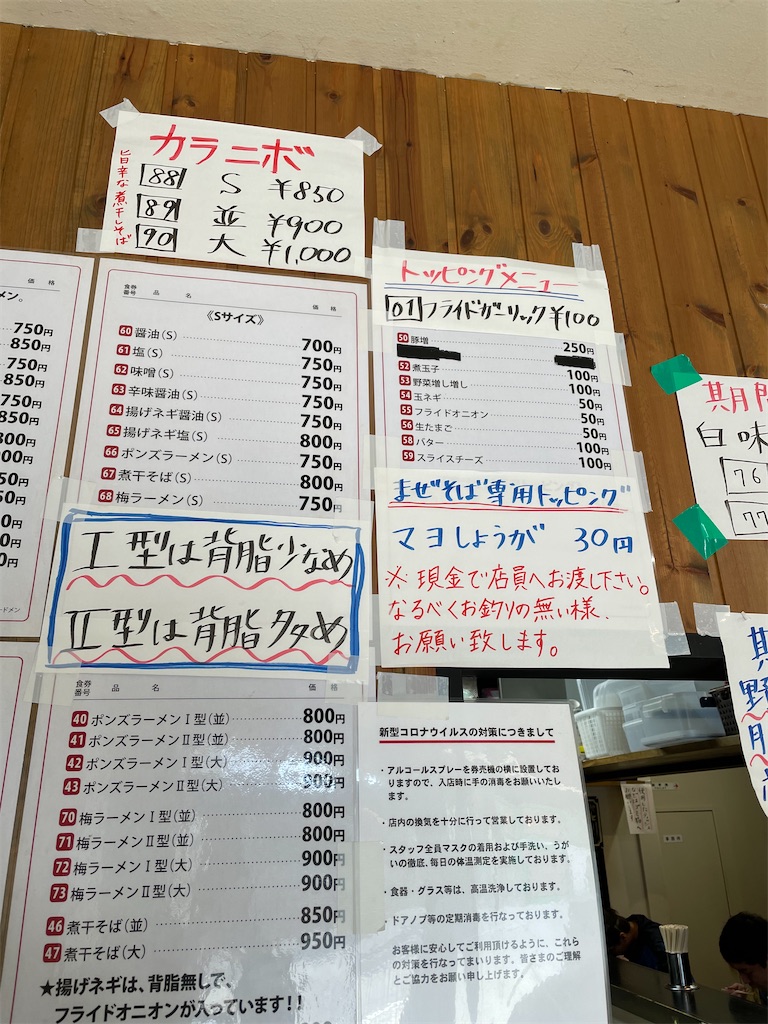 カラニボ
旨辛な煮干しそば
88 S ¥850
89 並 ¥900
90 大 ¥1,000
価 格
メン。
750円
850円
750円
850円
750円
850円
食券番号 品 名 価 格
《Sサイズ》
60 醤油(S) 700円
61 塩(S) 750円
62 味噌(S) 750円
63 辛味醤油(S) 750円
64 揚げネギ醤油(S) 750円
65 揚げネギ塩(S) 800円
66 ポンズラーメン(S) 750円
67 煮干そば(S) 800円
68 梅ラーメン(S) 750円
トッピングメニュー
01 フライドガーリック ¥100
50 豚増 250円
52 煮玉子 100円
53 野菜増し増し 100円
54 玉ネギ 50円
55 フライドオニオン 50円
56 生たまご 50円
58 バター 100円
59 スライスチーズ 100円
まぜそば専用トッピング
マヨしょうが 30円
※現金で店員へお渡し下さい。
なるべくお釣りの無い様、
お願い致します。
白味
76
77
I型は背脂少なめ
II型は背脂多め
食券番号 品 名 価 格
40 ポンズラーメンⅠ型(並) 800円
41 ポンズラーメンⅡ型(並) 800円
42 ポンズラーメンⅠ型(大) 900円
43 ポンズラーメンⅡ型(大) 900円
70 梅ラーメンⅠ型(並) 800円
71 梅ラーメンⅡ型(並) 800円
72 梅ラーメンⅠ型(大) 900円
73 梅ラーメンⅡ型(大) 900円
46 煮干そば(並) 850円
47 煮干そば(大) 950円
★揚げネギは、背脂無しで、
フライドオニオンが入っています!!
新型コロナウイルスの対策につきまして
・アルコールスプレーを券売機の横に設置してお
りますので、入店時に手の消毒をお願いいたし
ます。
・店内の換気を十分に行って営業しております。
・スタッフ全員マスタの着用および手洗い、うが
いの徹底、毎日の体温測定を実施しております。
・食器・グラス等は、高温洗浄しております。
・ドアノブ等の定期消毒を行なっております。
お客様に安心してご利用頂けるように、これら
の対策を行なってまいります。皆さまのご理解
とご協力をお願い申し上げます。